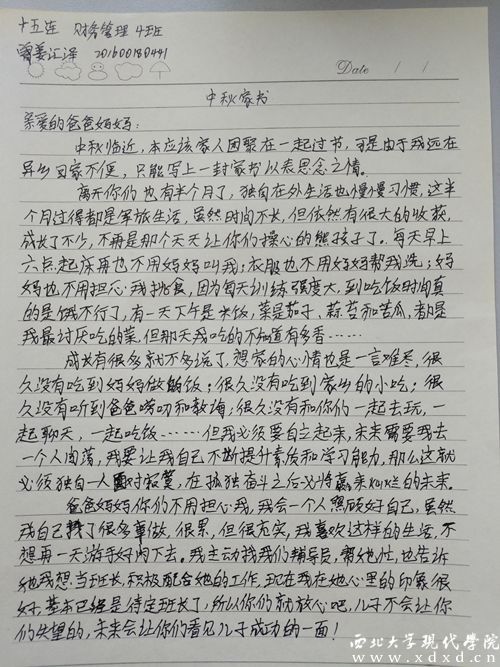 十五连 财务管理4班
雷姜汇泽 201600180441
Date / /
中秋家书
亲爱的爸爸妈妈：
中秋临近，本应该家人团聚在一起过节，可是由于我远在
异乡回家不便，只能写上一封家书以表思念之情。
离开你们也有半个月了，独自在外生活也慢慢习惯，这半
个月过得都是军旅生活，虽然时间不长，但依然有很大的收获，
成长了不少，不再是那个天天让你们操心的熊孩子了。每天早上
六点起床再也不用妈妈叫我；衣服也不用妈妈帮我洗；妈
妈也不用担心我挑食，因为每天训练强度大，到吃饭时间真
的是饿不行了，有一天下午是米饭，菜是茄子、蒜苔和苦瓜，都是
我最讨厌吃的菜，但那天我吃的不知道有多香……
成长有很多就不多说了，想家的心情也是一言难尽，很
久没有吃到妈妈做的饭；很久没有吃到家乡的小吃；很
久没有听到爸爸唠叨和教诲；很久没有和你们一起去玩，一
起聊天，一起吃饭……但我必须要自立起来，未来需要我去
一个人闯荡，我要让我自己不断提升素质和学习能力，那么这就
必须独自一人面对寂寞，在孤独奋斗之后必将赢来灿烂的未来。
爸爸妈妈你们不用担心我，我会一个人照顾好自己，虽然
我自己找了很多事做，很累，但很充实，我喜欢这样的生活，不
想再一天游手好闲下去。我主动找我们辅导员，帮她忙，也告诉
她我想当班长，积极配合她的工作，现在我在她心里的印象很
好，基本已经是待定班长了，所以你们就放心吧，儿子不会让你
们失望的，未来会让你们看见儿子成功的一面！
西北大学现代学院
www.xdxd.cn